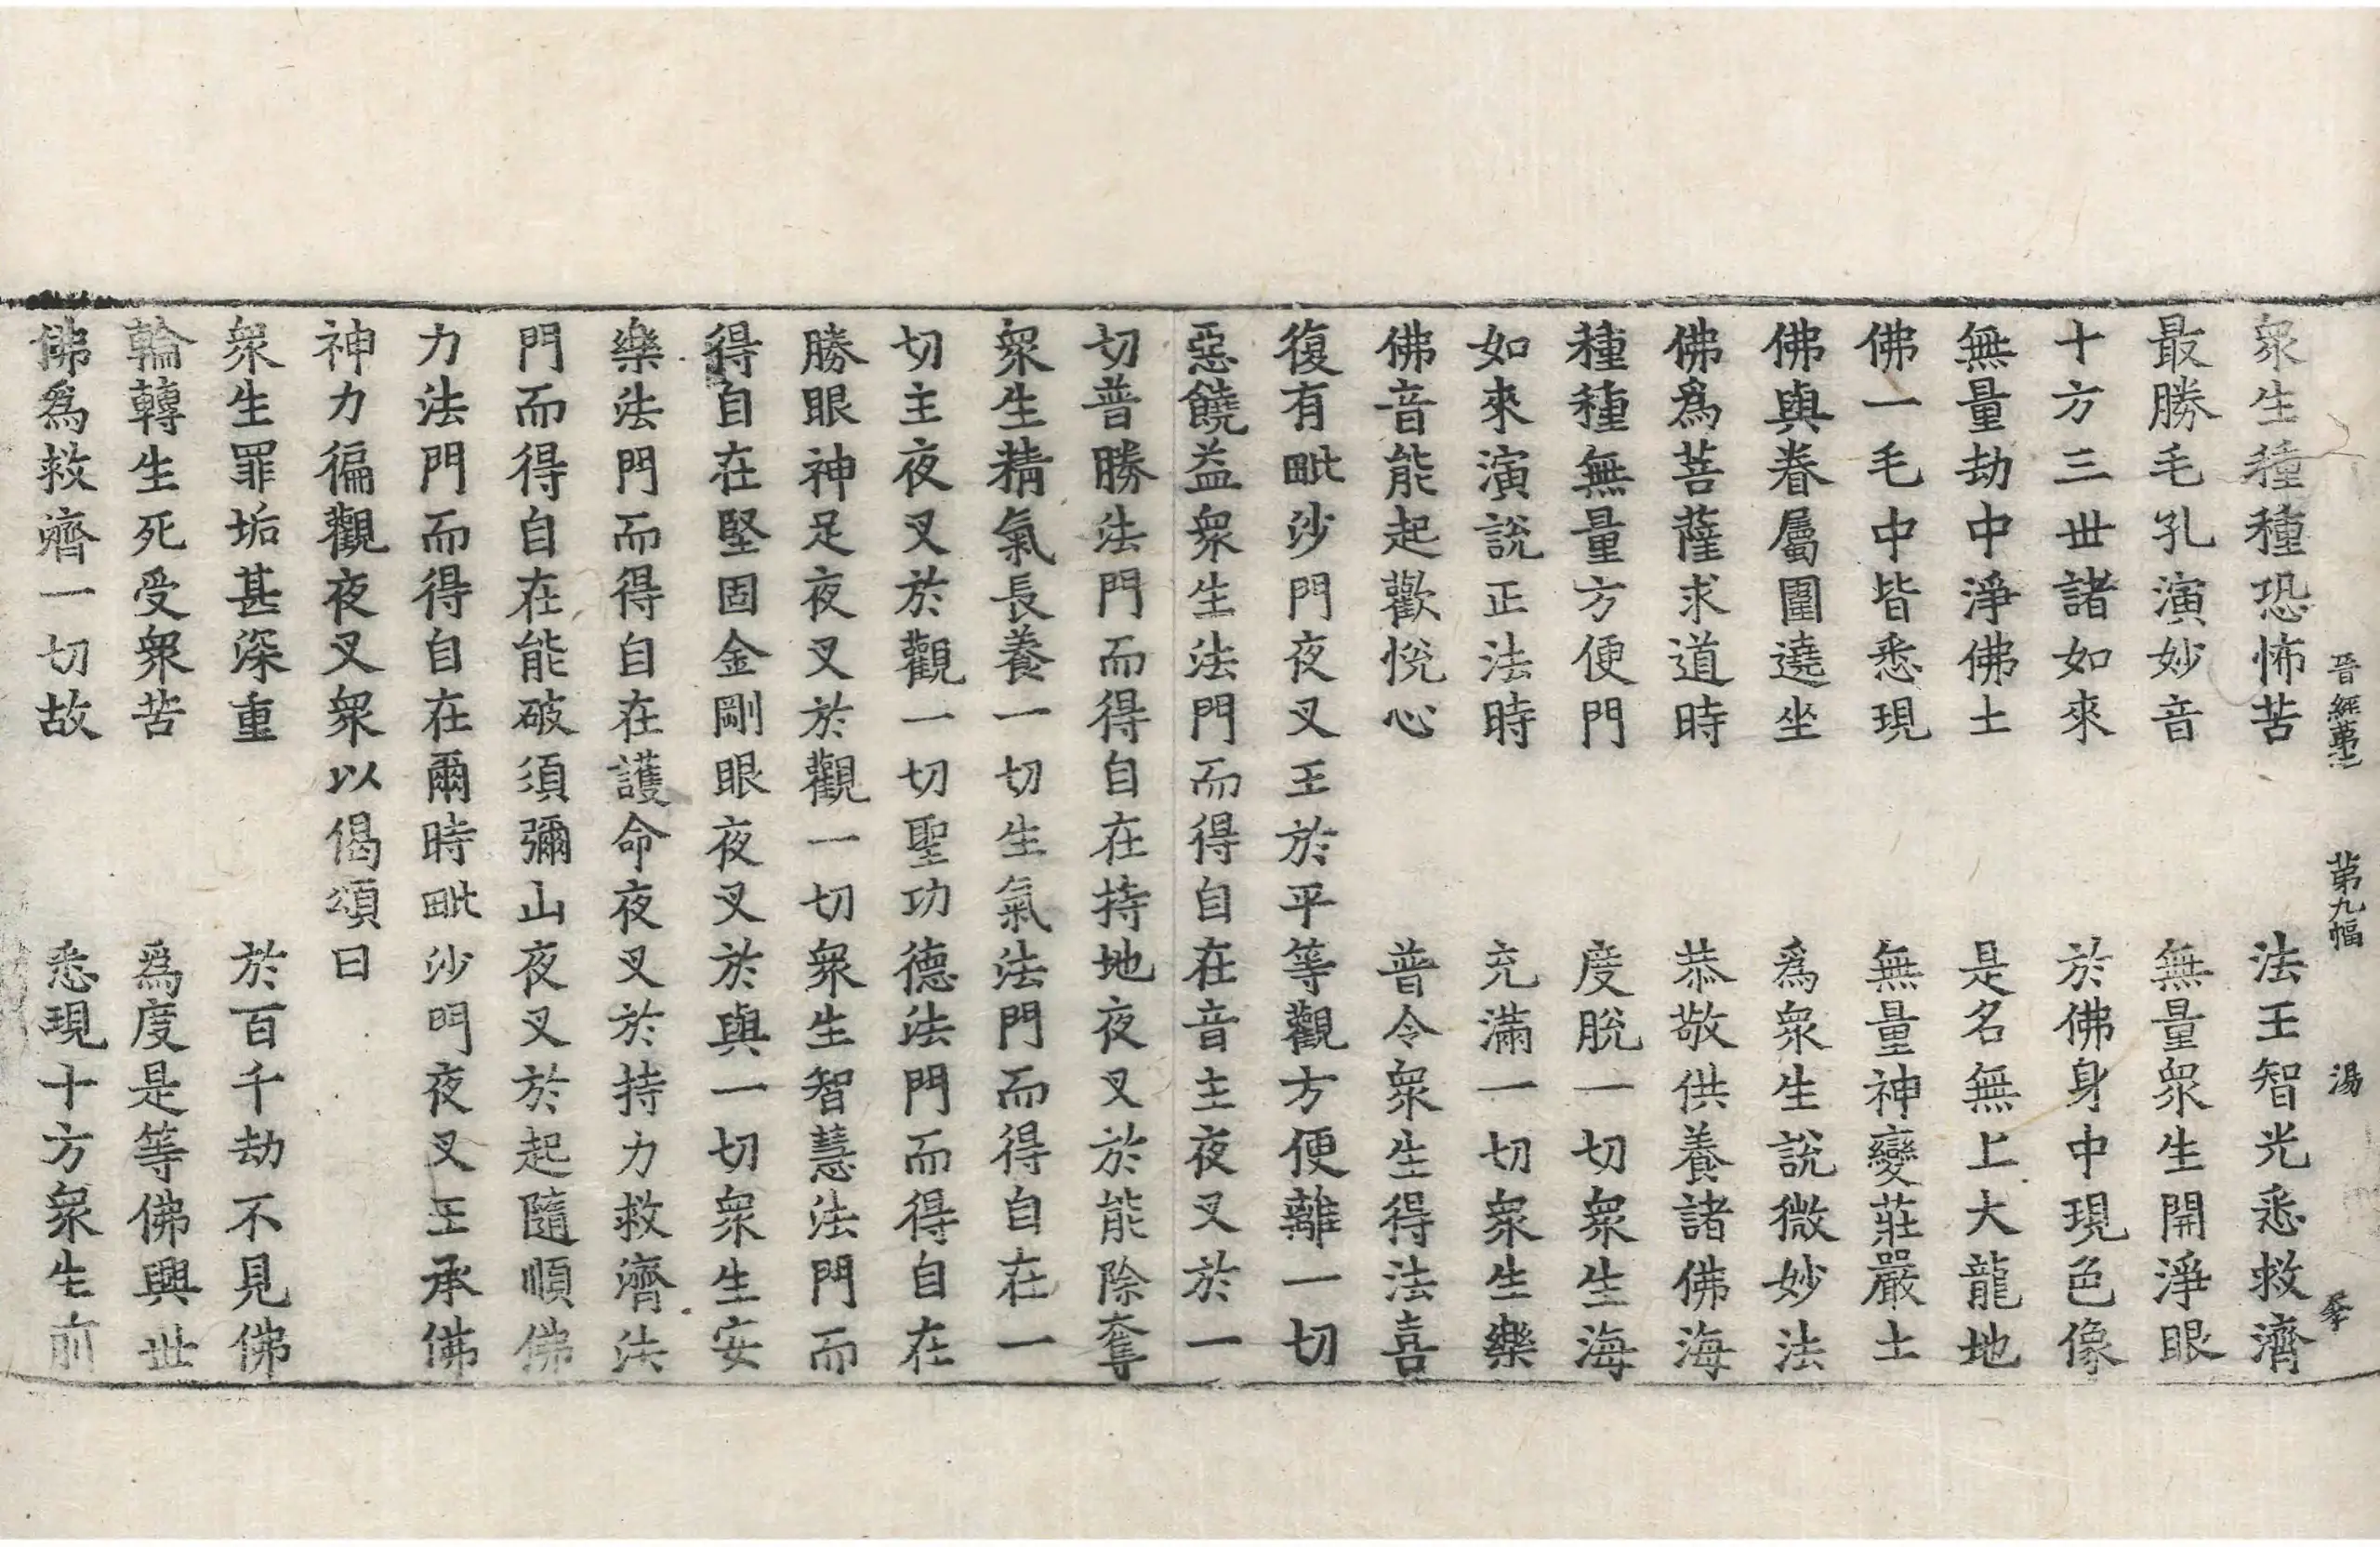 晉經第二 第九幅 湯
衆生種種恐怖苦 法王智光悉救濟
最勝毛孔演妙音 無量衆生開淨眼
十方三世諸如來 於佛身中現色像
無量劫中淨佛土 是名無上大龍地
佛一毛中皆悉現 無量神變莊嚴土
佛與眷屬圍遶坐 爲衆生說微妙法
佛爲菩薩求道時 恭敬供養諸佛海
種種無量方便門 度脫一切衆生海
如來演說正法時 充滿一切衆生樂
佛音能起歡悅心 普令衆生得法喜
復有毗沙門夜叉王於平等觀方便離一切
惡饒益衆生法門而得自在音主夜叉於一
切普勝法門而得自在持地夜叉於能除奪
衆生精氣長養一切生氣法門而得自在一
切主夜叉於觀一切聖功德法門而得自在
勝眼神足夜叉於觀一切衆生智慧法門而
得自在堅固金剛眼夜叉於與一切衆生安
樂法門而得自在護命夜叉於持力救濟法
門而得自在能破須彌山夜叉於起隨順佛
力法門而得自在爾時毗沙門夜叉王承佛
神力徧觀夜叉衆以偈頌曰
衆生罪垢甚深重 於百千劫不見佛
輪轉生死受衆苦 爲度是等佛興世
佛爲救濟一切故 悉現十方衆生前